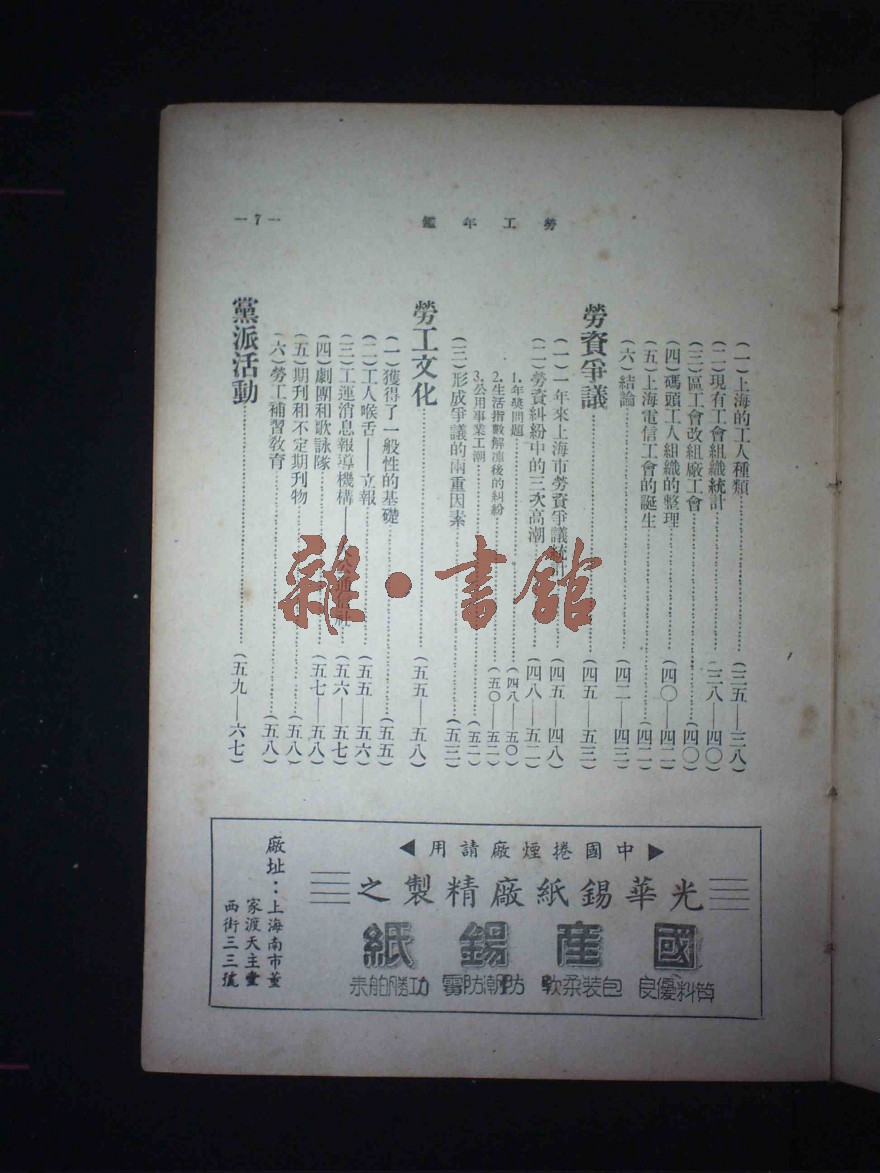 勞工年鑑
—7—
(一)上海的工人種類……(三五—三八)
(二)現有工會組織統計……(三八—四〇)
(三)區工會改組廠工會……(四〇)
(四)碼頭工人組織的整理……(四〇—四二)
(五)上海電信工會的誕生……(四二)
(六)結論……(四二—四三)
勞資爭議……(四五—五三)
(一)一年來上海市勞資爭議統……(四五—四八)
(二)勞資糾紛中的三次高潮……(四八—五二)
1.年獎問題……(四八—五〇)
2.生活指數解凍後的糾紛……(五〇—五二)
3.公用事業工潮……(五二)
(三)形成爭議的兩重因素……(五三)
勞工文化……(五五—五八)
(一)獲得了一般性的基礎……(五五)
(二)工人喉舌——立報……(五五—五六)
(三)工運消息報導機構——社……(五六—五七)
(四)劇團和歌詠隊……(五七—五八)
(五)期刊和不定期刊物……(五八)
(六)勞工補習教育……(五八)
黨派活動……(五九—六七)
雜·書館
中國捲煙廠請用
光華錫紙廠精製之
國產錫紙
質料優良 包裝柔軟 防潮防霉 功勝舶來
廠址：上海南市董
家渡天主堂
西街三三號